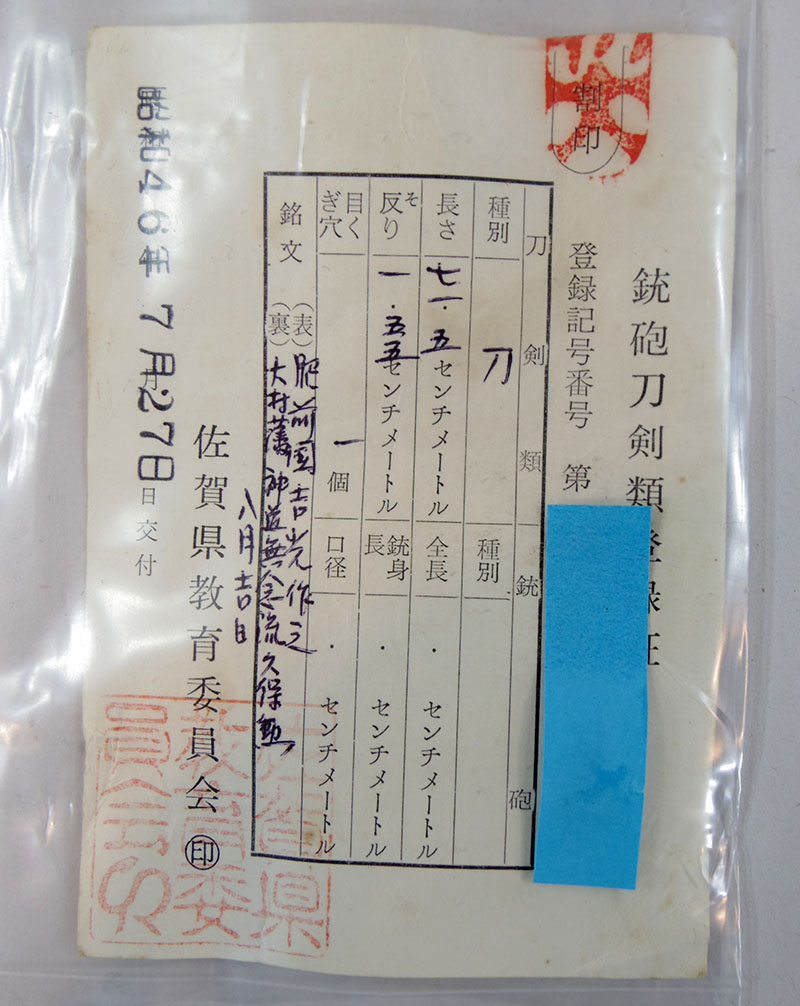 割印
銃砲刀剣類登録証
登録記号番号 第
刀剣類
銃砲
種別 刀
長さ 七一・五センチメートル
反り そ 一・五五センチメートル
目くぎ穴 一個
銘文
(表) 肥前国吉光作之
(裏) 大村藩神道無念流久保勲
八月吉日
種別
全長 ・ センチメートル
銃身長 ・ センチメートル
口径 ・ センチメートル
昭和46年7月27日
日交付
佐賀県教育委員会 印
佐賀県教育委員会